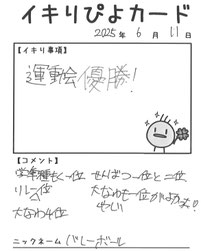 イキりぴよカード
2025年 6月 11日
【イキり事項】
運動会優勝!
【コメント】
学年種もく一位 せんばつ一位と二位
リレー位
大なわも一位がよかった!!
大なわ4位
ニックネーム バレーボール